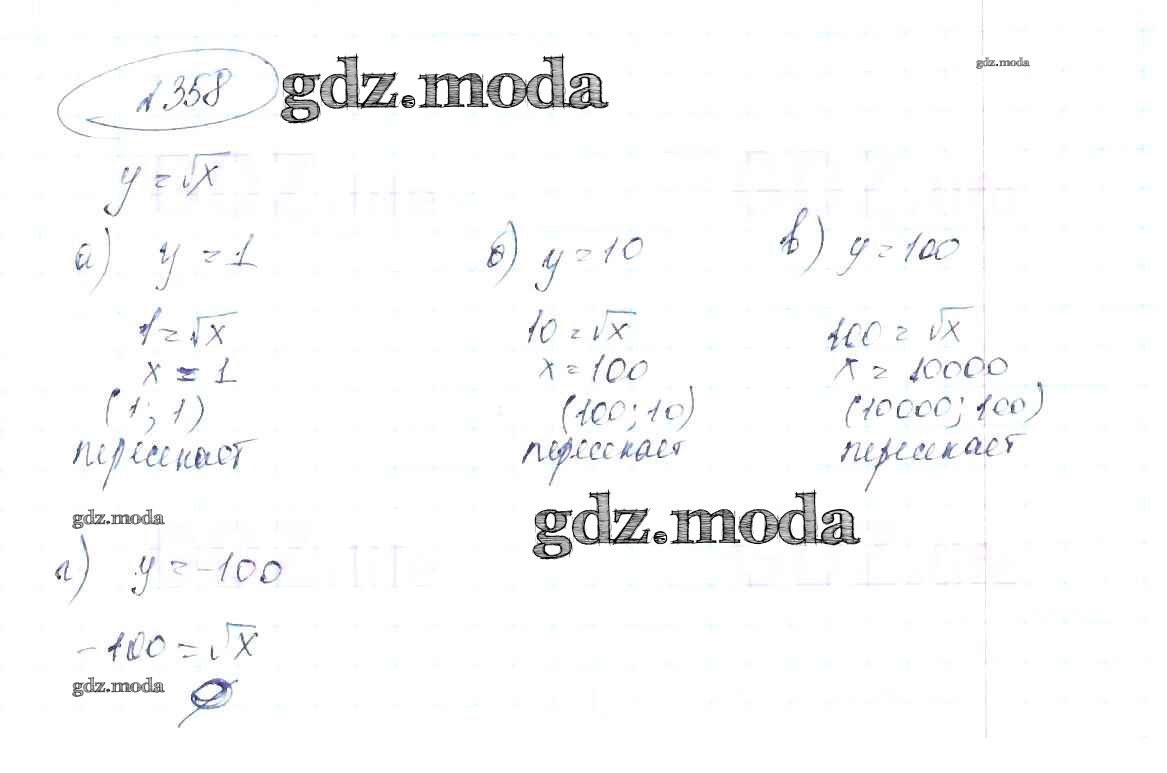 №358 gdz.moda
gdz.moda
y = √x
а) y = 1
1 = √x
x = 1
(1; 1)
пересекает
б) y = 10
10 = √x
x = 100
(100; 10)
пересекает
в) y = 100
100 = √x
x = 10000
(10000; 100)
пересекает
gdz.moda
gdz.moda
г) y = -100
-100 = √x
gdz.moda
∅